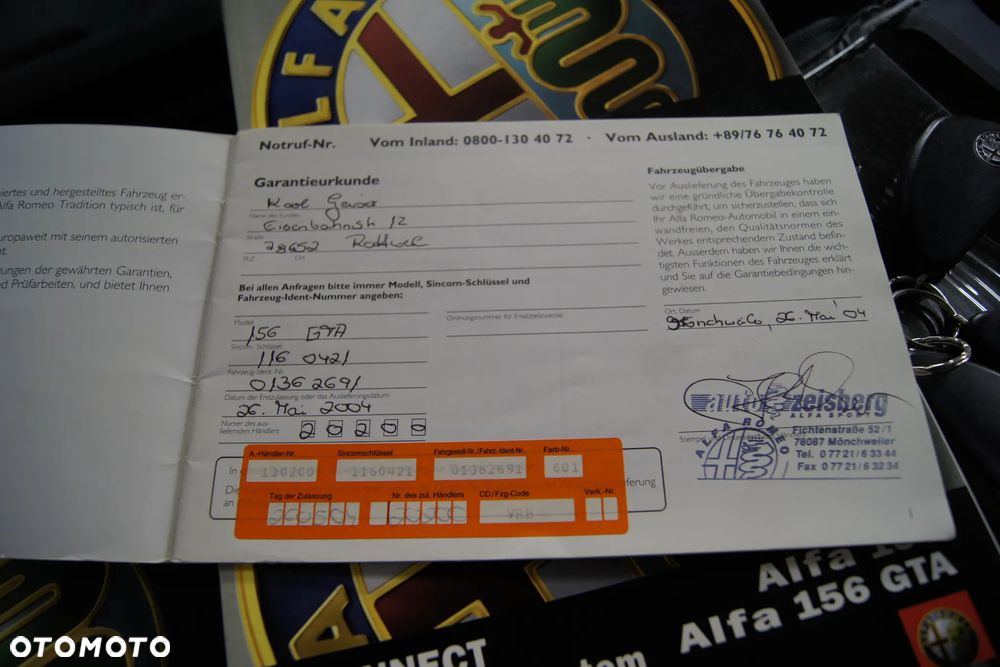 ALFA
Notruf-Nr. Vom Inland: 0800-130 40 72 · Vom Ausland: +89/76 76 40 72
iertes und hergestelltes Fahrzeug er-
Alfa Romeo Tradition typisch ist, für
europaweit mit seinem autorisierten
ungen der gewährten Garantien,
d Prüfarbeiten, und bietet Ihnen
Garantieurkunde
Name des Kunden
Eisenbahnstr 12
Straße
78652
PLZ Ort
Bei allen Anfragen bitte immer Modell, Sincom-Schlüssel und
Fahrzeug-Ident-Nummer angeben:
Modell
156 GTA
Sincom-Schlüssel
116 0421
Fahrzeug-Ident.-Nr.
01362691
Datum der Erstzulassung oder das Auslieferungsdatum
26. Mai 2004
Nummer des aus-
liefernden Händlers
20200
Ordnungsnummer für Ersatzteilzwecke
Fahrzeugübergabe
Vor Auslieferung des Fahrzeuges haben
wir eine gründliche Übergabekontrolle
durchgeführt, um sicherzustellen, dass sich
Ihr Alfa Romeo-Automobil in einem ein-
wandfreien, den Qualitätsnormen des
Werkes entsprechendem Zustand befin-
det. Ausserdem haben wir Ihnen die wich-
tigsten Funktionen des Fahrzeuges erklärt
und Sie auf die Garantiebedingungen hin-
gewiesen.
Ort, Datum
Mönchweiler, 26. Mai 04
auto zeisberg
ALFA SPORT
ALFA ROMEO
Fichtenstraße 52/1
78087 Mönchweiler
Tel. 0 77 21/6 33 44
Fax 0 77 21/6 32 34
Stempel und
In
Die
an
eferung
A.-Händler-Nr. Sincomschlüssel Fahrgestell-Nr./Fahrz.-Ident-Nr. Farb-Nr.
120200 1160421 01362691 601
Tag der Zulassung Nr. des zul. Händlers CD/Fzg-Code Verk.-Nr.
260504 20200 VRB
1
Alfa
Alfa 156 GTA
NNECT
tem
OTOMOTO